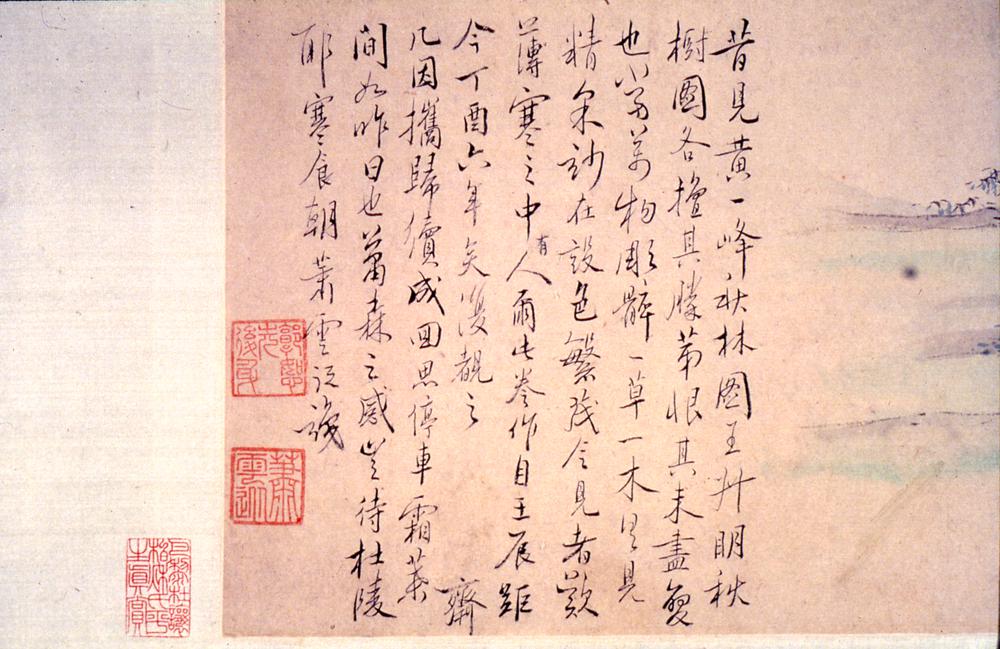 昔見黃一峰秋林圖王叔明秋
樹圖各擅其勝第恨其未盡變
也當萬物彫髒一草一木具見
精采妙在設色繁茂令見者歎
薄寒之中有人爾此卷作自壬辰距
今丁酉六年矣復觀之齋
几因攜歸續成回思停車霜葉
間如昨日也蕭森之感豈待杜陵
耶寒食朝蕭雲從識
蕭雲從